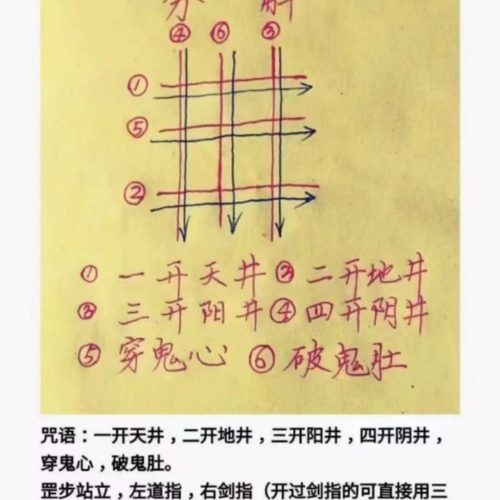 分 解
④ ⑥ ③
①
⑤
②
① 一开天井 ② 二开地井
③ 三开阳井 ④ 四开阴井
⑤ 穿鬼心 ⑥ 破鬼肚
咒语：一开天井，二开地井，三开阳井，四开阴井，
穿鬼心，破鬼肚。
罡步站立，左道指，右剑指（开过剑指的可直接用三